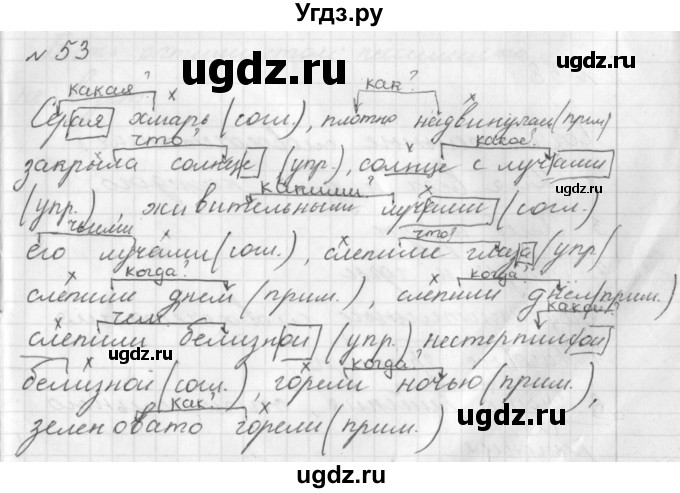 Угдз.ру
№ 53
какая? как?
Серая хмарь (согл.), плотно надвинулам (прим)
что? какое?
закрыла солнце (упр.), солнце с лучами
какими?
(упр.), живительными лучами (согл.)
чьими что?
его лучами (согл.), слепили глаза (упр)
когда? когда?
слепили днём (прим.), слепили днём (прим.)
чем? какой?
слепили белизной (упр.) нестерпимой
когда?
белизной (согл.), горели ночью (прим.),
как?
зеленовато горели (прим.)
ugdz.ru
ugdz.ru
ugdz.ru
ugdz.ru
ugdz.ru
ugdz.ru
ugdz.ru
ugdz.ru
ugdz.ru